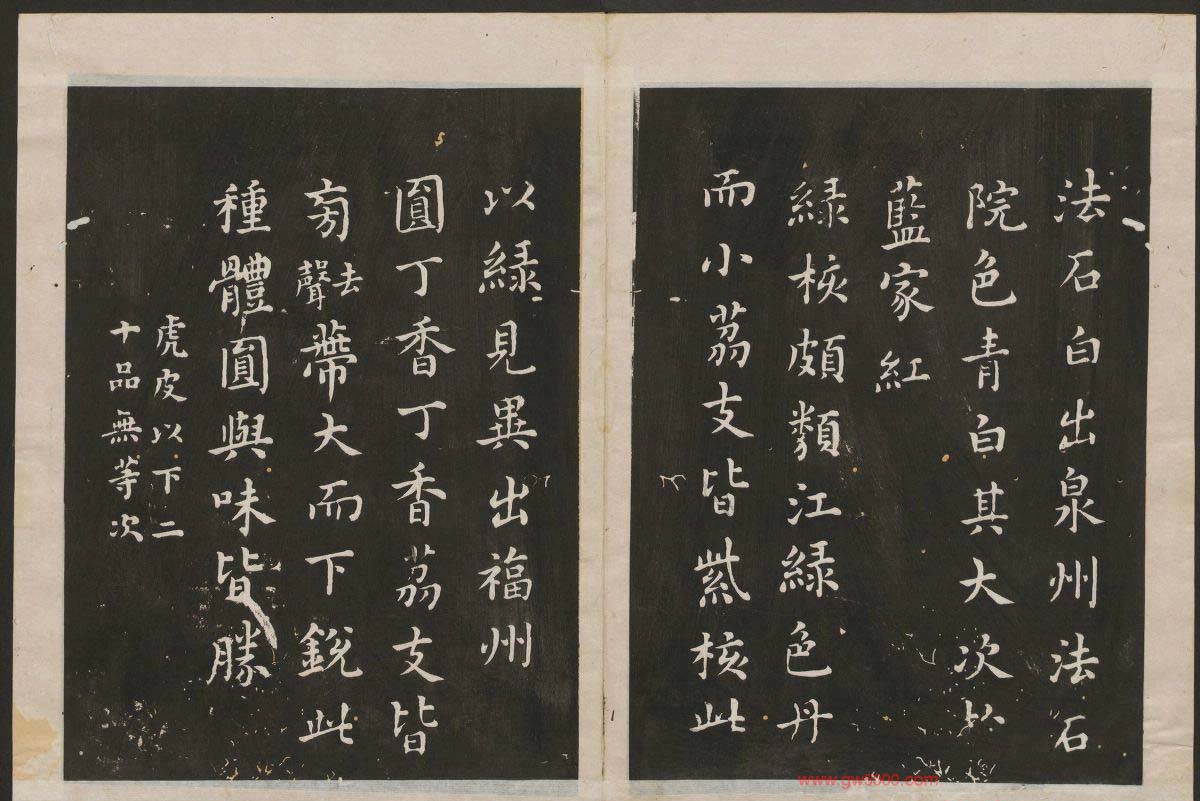 法石白出泉州法石
院色青白其大次於
藍家紅
緑核頗類江緑色丹
而小茘支皆紫核此
以緑見異出福州
圓丁香丁香茘支皆
旁去聲蔕大而下銳此
種體圓與味皆勝
虎皮以下二
十品無等次
www.gw5000.com